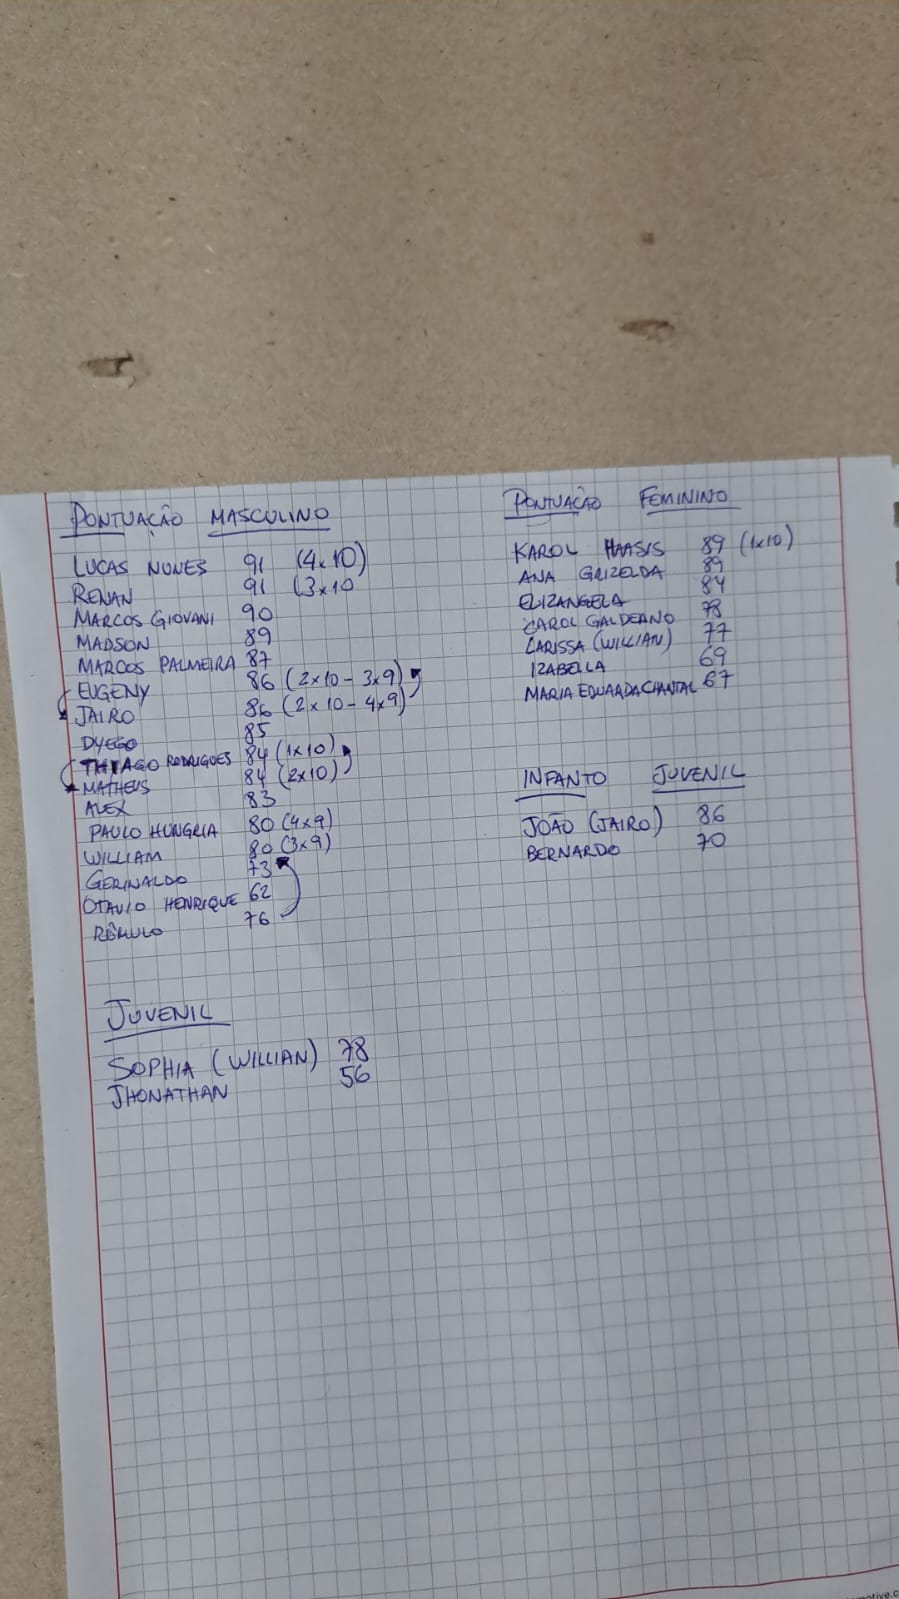 PONTUAÇÃO MASCULINO
LUCAS NUNES 91 (4x10)
RENAN 91 (3x10
MARCOS GIOVANI 90
MADSON 89
MARCOS PALMEIRA 87
EUGENY 86 (2x10 - 3x9)
JAIRO 86 (2x10 - 4x9)
DYEGO 85
THIAGO RODRIGUES 84 (1x10)
MATHEUS 84 (2x10)
ALEX 83
PAULO HUNGRIA 80 (4x9)
WILLIAM 80 (3x9)
GERINALDO 73
OTAVIO HENRIQUE 62
RÔMULO 76
PONTUAÇÃO FEMININO
KAROL HAASIS 89 (1x10)
ANA GRIZELDA 89
ELIZANGELA 84
CAROL GALDEANO 78
LARISSA (WILLIAN) 77
IZABELLA 69
MARIA EDUARDA CHANTAL 67
INFANTO JUVENIL
JOÃO (JAIRO) 86
BERNARDO 70
JUVENIL
SOPHIA (WILLIAN) 78
JHONATHAN 56